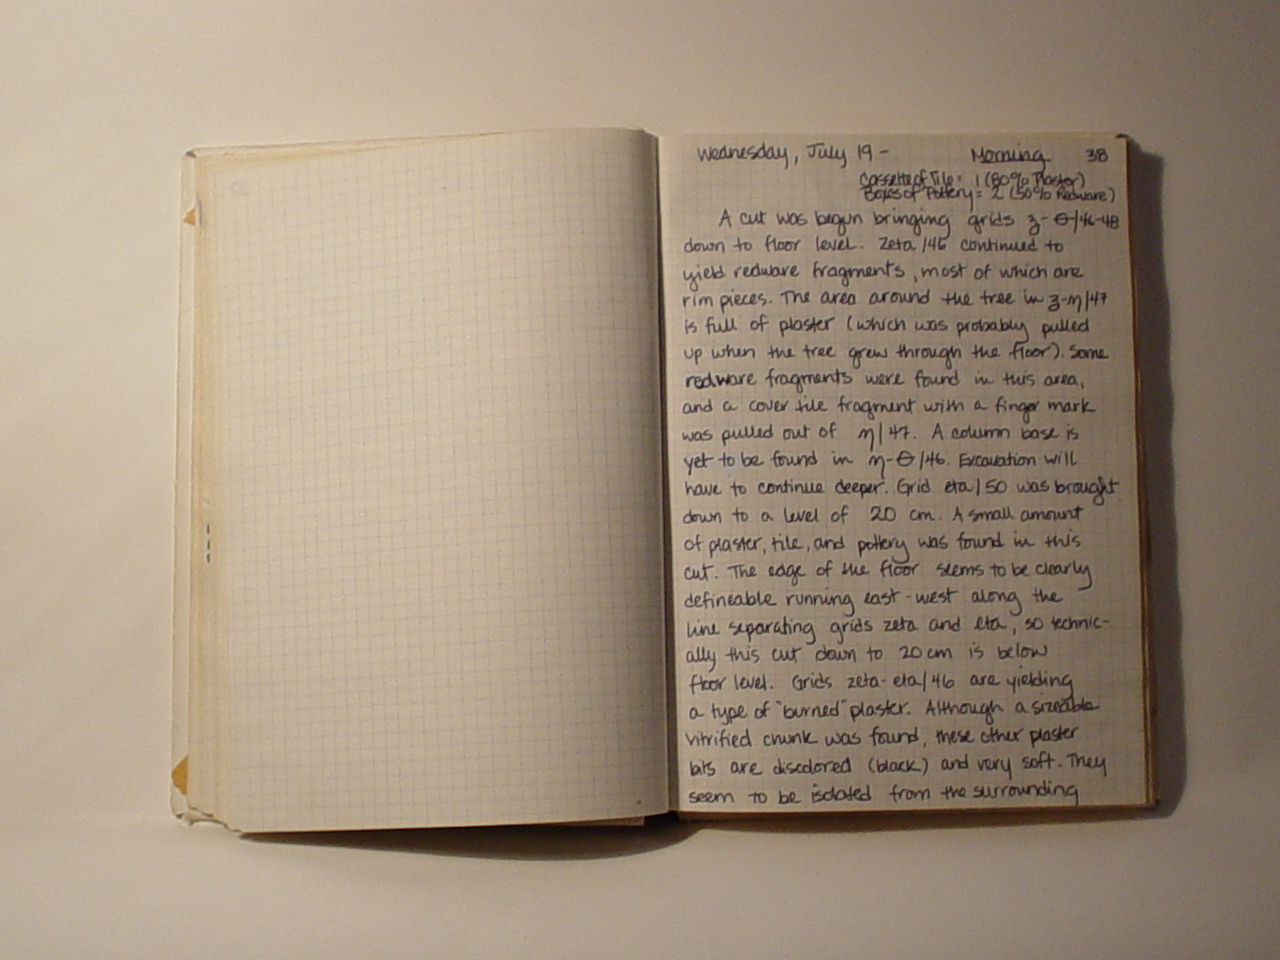 Wednesday, July 19 - Morning 38
Cassette of Tile = 1 (80% Plaster)
Boxes of Pottery = 2 (50% Redware)
A cut was begun bringing grids z-Θ/46-48
down to floor level. Zeta/46 continued to
yield redware fragments, most of which are
rim pieces. The area around the tree in z-η/47
is full of plaster (which was probably pulled
up when the tree grew through the floor). Some
redware fragments were found in this area,
and a cover tile fragment with a finger mark
was pulled out of η/47. A column base is
yet to be found in η-Θ/46. Excavation will
have to continue deeper. Grid eta/50 was brought
down to a level of 20 cm. A small amount
of plaster, tile, and pottery was found in this
cut. The edge of the floor seems to be clearly
defineable running east-west along the
line separating grids zeta and eta, so technic-
ally this cut down to 20 cm is below
floor level. Grids zeta-eta/46 are yielding
a type of "burned" plaster. Although a sizeable
vitrified chunk was found, these other plaster
bits are discolored (black) and very soft. They
seem to be isolated from the surrounding